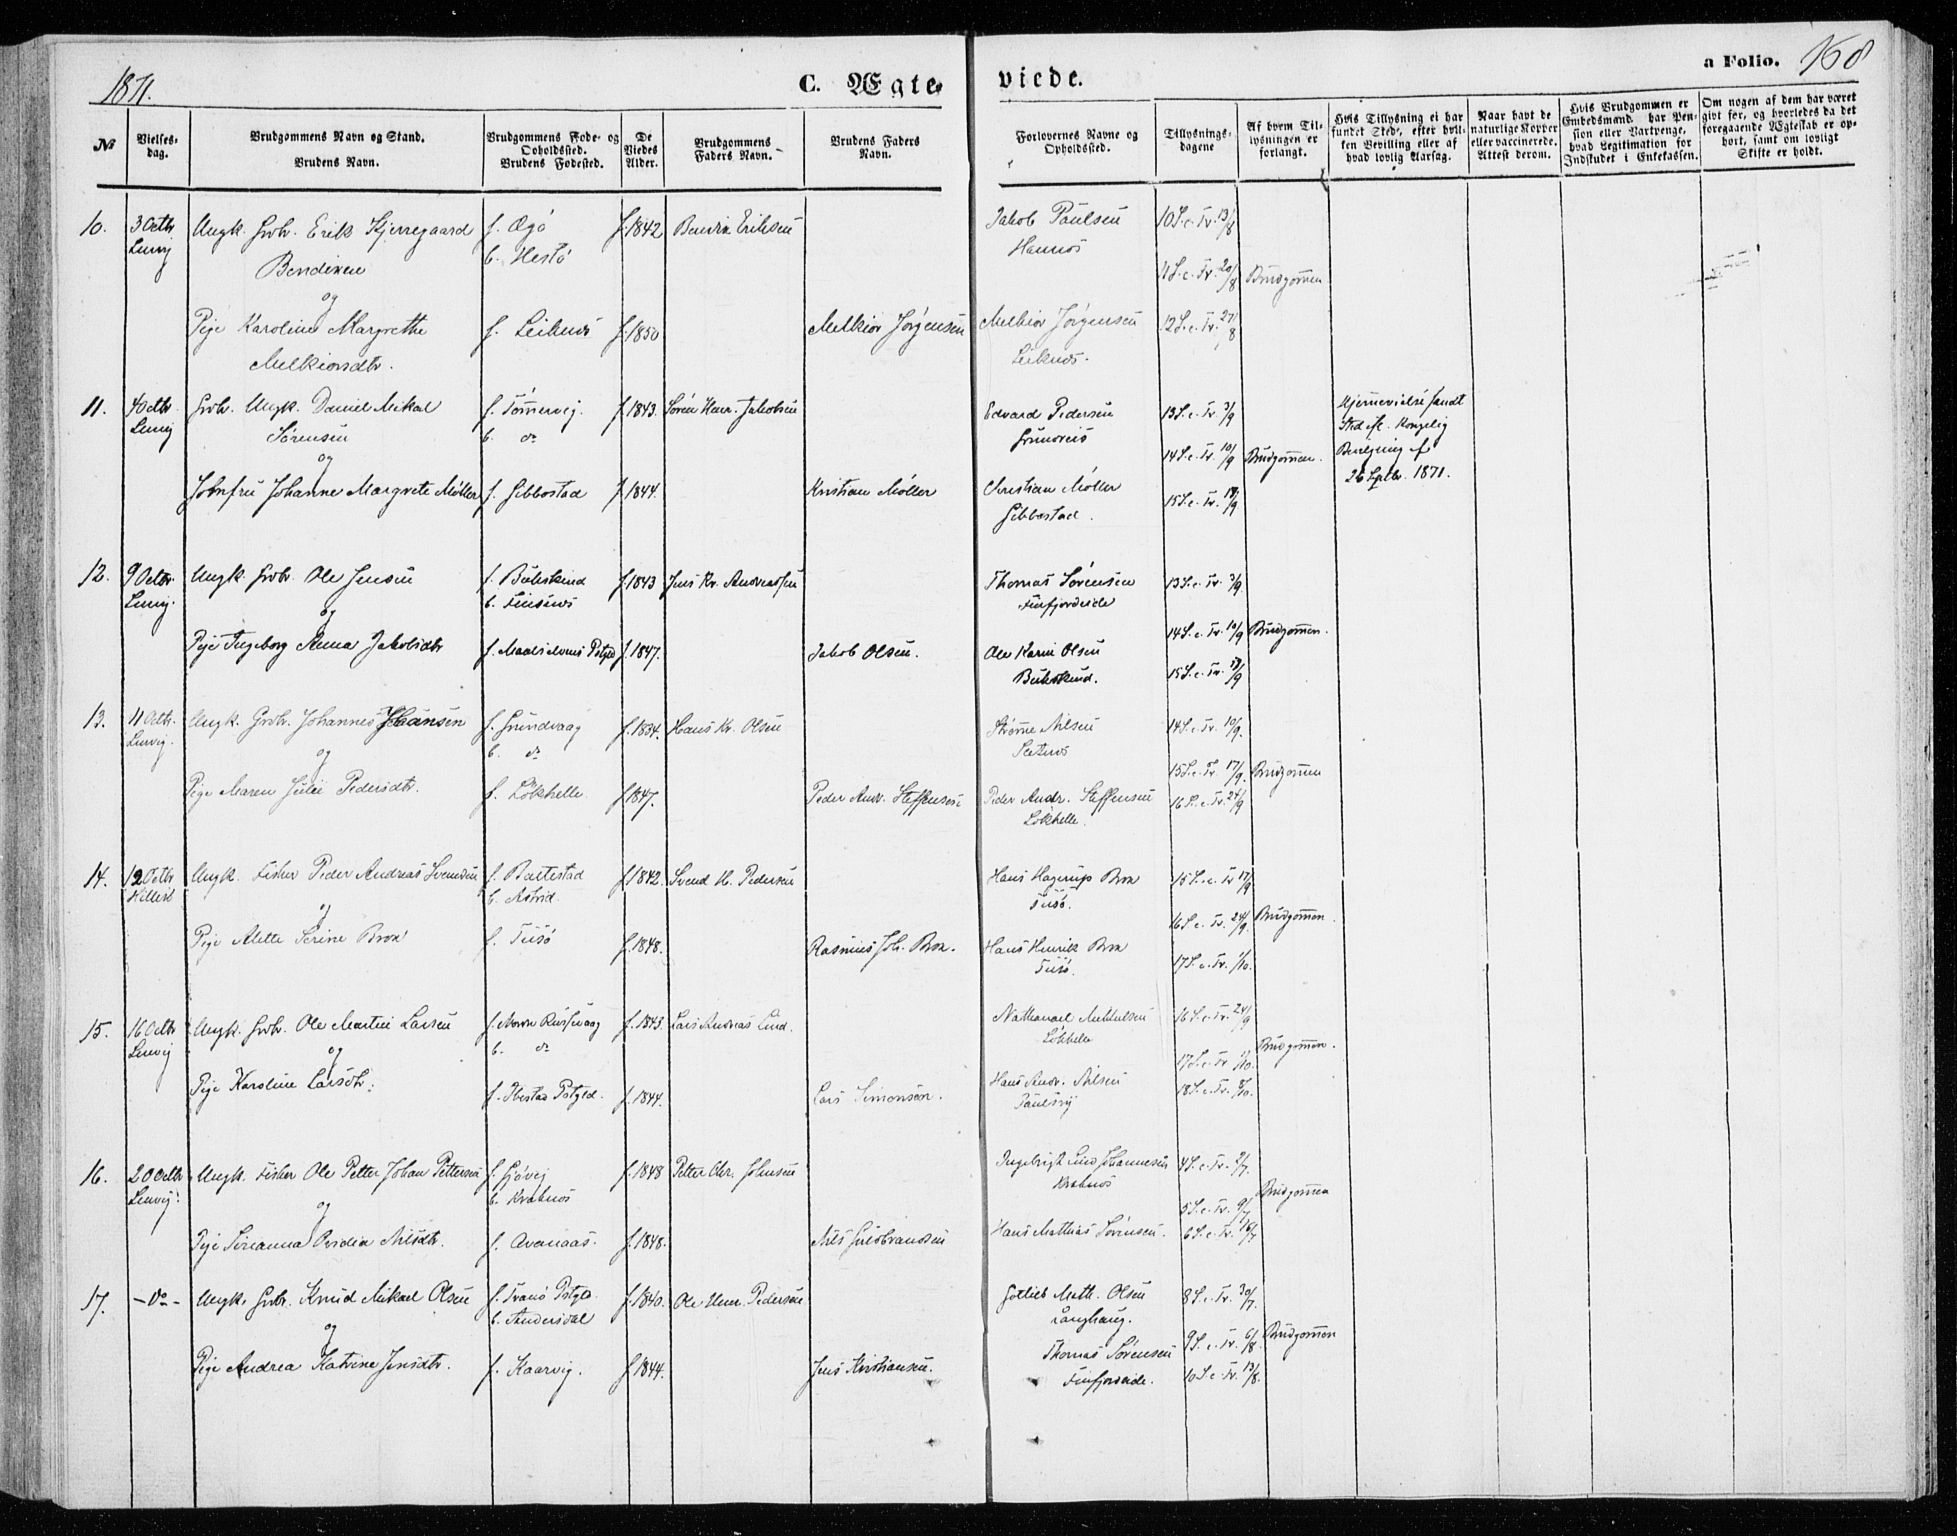 1871.
C. Ægte
viede.
a Folio. 168
№
Vielses-
dag.
Brudgommens Navn og Stand.
Brudens Navn.
Brudgommens Føde- og
Opholdssted.
Brudens Fødested.
De
Viedes
Alder.
Brudgommens
Faders Navn.
Brudens Faders
Navn.
Forlovernes Navne og
Opholdssted.
Tillysnings-
dagene
Af hvem Til-
lysningen er
forlangt.
Hvis Tillysning ei har
fundet Sted, efter hvil-
ken Bevilling eller af
hvad lovlig Aarsag.
Naar havt de
naturlige Kopper
eller vaccinerede.
Attest derom.
Hvis Brudgommen er
Embedsmand, har Pen-
sion eller Vartpenge,
hvad Legitimation for
Indskudet i Enkekassen.
Om nogen af dem har været
givt før, og hvorledes da det
foregaaende Ægteskab er op-
hørt, samt om lovligt
Skifte er holdt.
10. 3 Octb Ungk. Grbr. Erik Kjerregaard f. Øgö f. 1842 Bendix Eriksen Jakob Paulsen 10 S. e. Tr. 13/8
Lenvig Bendixen b. Hestö
11 S. e. Tr. 20/8 Brudgommen
og
Pige Karoline Margrethe f. Leiknes f. 1850 Melkior Jørgensen Melkior Jørgensen 12 S. e. Tr. 27/8
Melkiorsdtr. Leiknes.
11. 4 Octbr. Grbr. Ungk. Daniel Mikal f. Tömmervig. f. 1843. Sören Henr. Jakobsen Edvard Pedersen 13 S. e. Tr. 3/9 Hjemmevielse fandt
Lenvig Sörensen b. do Grundreis Sted efl. Kongelig
og 14 S. e. Tr. 10/9 Brudgommen. Bevilgning af
Jobmfru Johanne Margrete Möller f. Gibbostad f. 1844. Kristian Möller Christian Möller 15 S. e. Tr. 17/9 26 Septbr. 1871.
Gibbostad.
12. 9 Octbr. Ungk. Grbr. Ole Jensen f. Bukskind f. 1843 Jens Kr. Andreassen Thomas Sörensen 13 S. e. Tr. 3/9.
Lenvig. b. Finsnes Finfjordeide
og 14 S. e. Tr. 10/9 Brudgommen.
Pige Ingeborg Anna Jakobsdtr f. Maalselvens Pstgld f. 1847. Jakob Olsen. Ole Karni Olsen 15 S. e. Tr. 17/9
Bukskind.
13. 11 Octbr. Ungk. Grbr. Johannes Hansen f. Grundvaag f. 1834. Hans Kr. Olsen Nilsen 14 S. e. Tr. 10/9.
Lenvig. b. do
og 15 S. e. Tr. 17/9. Brudgommen
Pige Maren Julie Pedersdtr. f. Lökhelle. f. 1847. Peder Andr. Steffensen Peder Andr. Steffensen 16 S. e. Tr. 24/9
Lökhelle.
14. 12 Octb Ungk. Fisker Peder Andreas Svendsen f. Baltestad f. 1842. Svend H. Pedersen Hans Hagerup Brox 15 S. e. Tr 17/9
Hillesö b. Astrid. Tusö.
og 16 S. e. Tr. 24/9. Brudgommen.
Pige Alette Serine Brox f. Tusö f. 1848. Rasmus Joh. Brox. Hans Henrik Brox 17 S. e. Tr. 1/10.
Tusö.
15. 16 Octb Ungk. Grbr. Ole Martin Larsen f. Nordre Russevaag f. 1843. Lars Andreas Lind. Nathanael Mikkelsen 16 S. e. Tr. 24/9
Lenvig b. do Lökhelle
og 17 S. e. Tr. 1/10. Brudgommen.
Pige Karoline Larsdtr. f. Ibestad Pstgld. f. 1844. Lars Simonsen. Hans Andr. Nilsen 18 S. e. Tr. 8/10.
Paulsvig
16. 20 Octbr Ungk. Fisker Ole Petter Johan Pettersen f. Gjövig f. 1848 Petter Chr. Johnsen Ingebrigt Johannesen 4 S. e. Tr. 2/7.
Lenvig. b. Kraknes Kraknes
og 5 S. e. Tr. 9/7 Brudgommen
Pige Sörianna Ovidia Nilsdtr. f. Avanaas. f. 1848. Nils Guldbrandsen Hans Mathias Sörensen. 6 S. e. Tr. 16/7
17. –do– Ungk. Grbr. Knud Mikael Olsen f. Tranö Pstgld. f. 1840. Ole Henr. Pedersen Gotlieb Math. Olsen 8 S. e. Tr. 30/7.
b. Andersdal Langhaug.
og 9 S. e. Tr. 6/8. Brudgommen
Pige Andrea Katrine Jensdtr. f. Kaarvig. f. 1844. Jens Kristiansen. Thomas Sörensen 10 S. e. Tr. 13/8.
Finfjordeide.